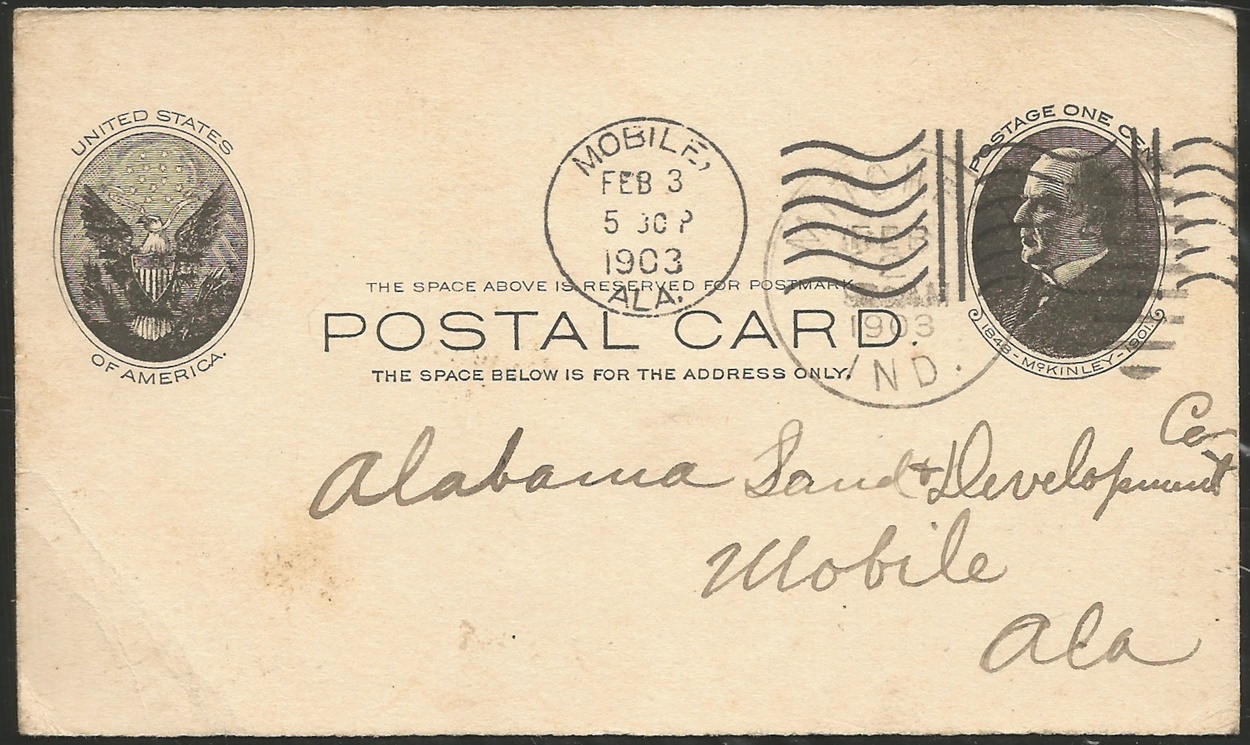 UNITED STATES
OF AMERICA.
MOBILE,
FEB 3
5 30 P
1903
ALA.
POSTAGE ONE CENT
1843 - McKINLEY - 1901.
FEB
1903
IND.
THE SPACE ABOVE IS RESERVED FOR POSTMARK.
POSTAL CARD.
THE SPACE BELOW IS FOR THE ADDRESS ONLY.
Alabama Land & Development Co
Mobile
Ala